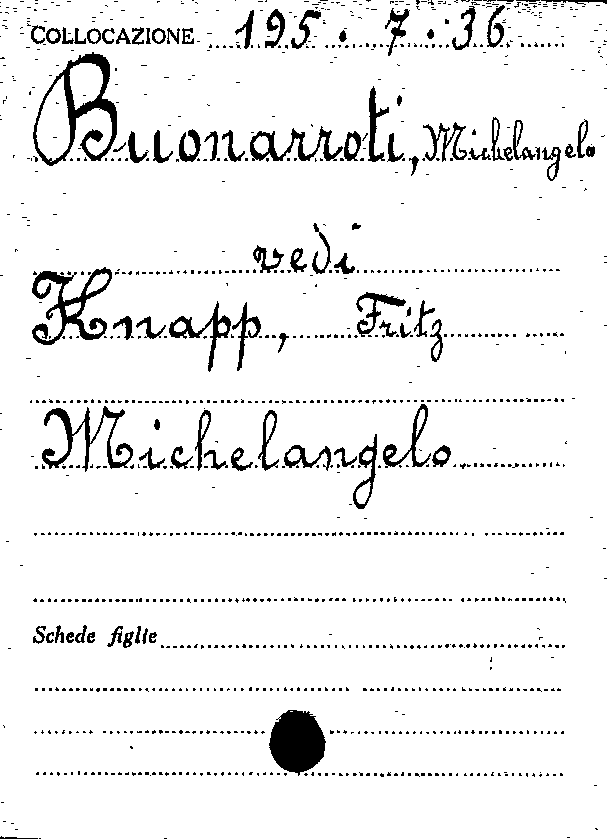 COLLOCAZIONE 195. 7. 36
Buonarroti, Michelangelo
vedi
Knapp, Fritz
Michelangelo
Schede figlie